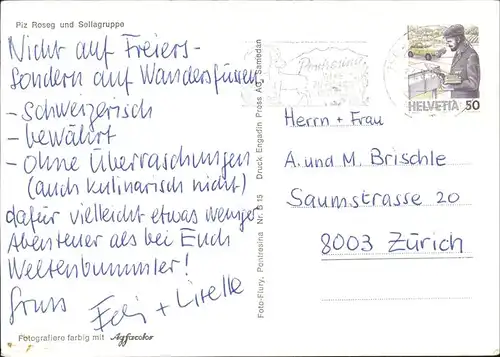 Piz Roseg und Sellagruppe
Nicht auf Freiers-
Sondern auf Wandersfüssen,
- Schweizerisch
- bewährt
- ohne Überraschungen
(auch kulinarisch nicht)
dafür vielleicht etwas weniger
Abenteuer als bei Euch
Weltenbummler!
Gruss
+ Liselle
Fotografiere farbig mit Agfacolor
Foto-Flury, Pontresina Nr. B 15 Druck Engadin Press AG, Samedan
Pontresina
HELVETIA 50
Herrn + Frau
A. und M. Brischle
Saumstrasse 20
8003 Zürich